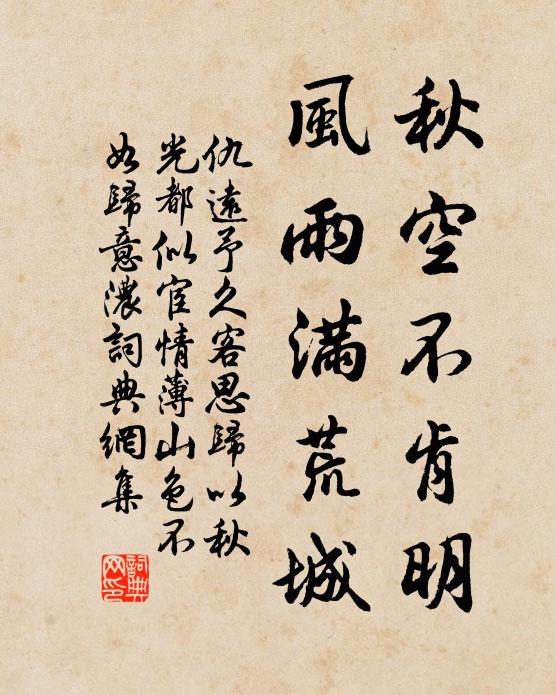 秋空不肯明
風雨滿荒城
仇遠予久客思歸以秋
光都似宦情薄山色不
如歸意濃詞典網集
詞典
网印